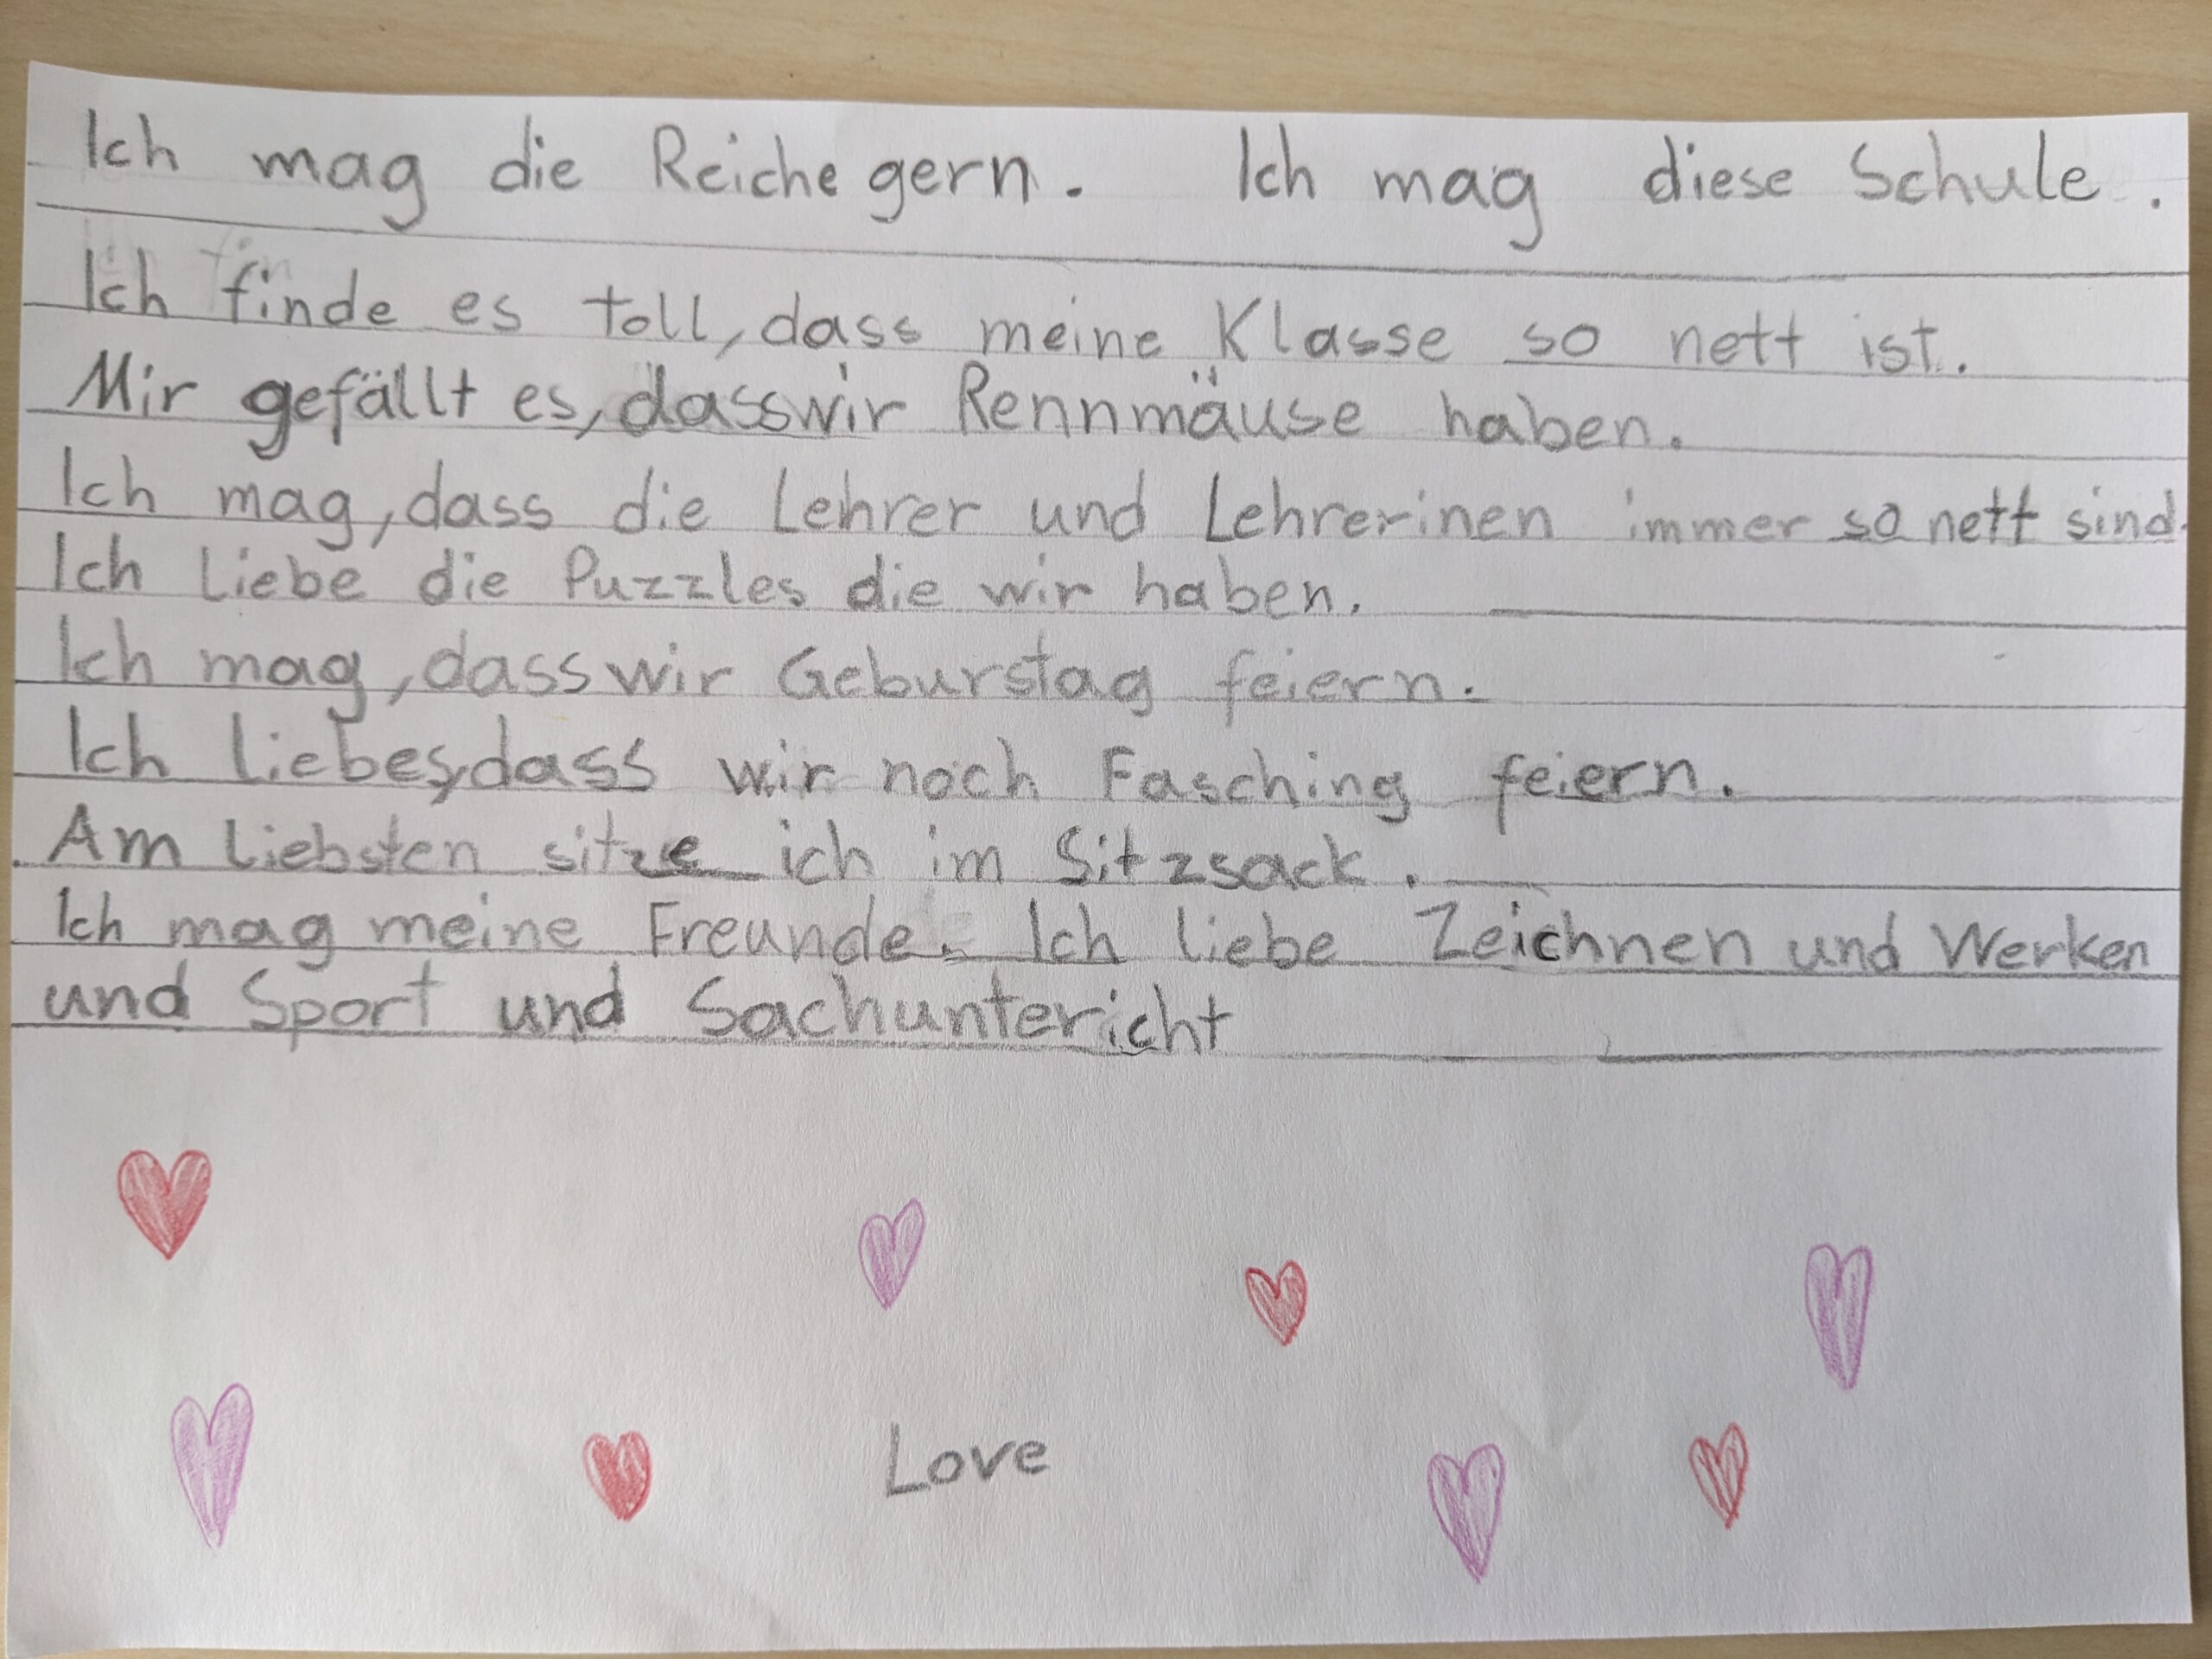 Ich mag die Reiche gern. Ich mag diese Schule.
Ich finde es toll, dass meine Klasse so nett ist.
Mir gefällt es, dass wir Rennmäuse haben.
Ich mag, dass die Lehrer und Lehrerinen immer so nett sind.
Ich liebe die Puzzles die wir haben.
Ich mag, dass wir Geburstag feiern.
Ich liebe es, dass wir noch Fasching feiern.
Am liebsten sitze ich im Sitzsack.
Ich mag meine Freunde. Ich liebe Zeichnen und Werken
und Sport und Sachuntericht
Love